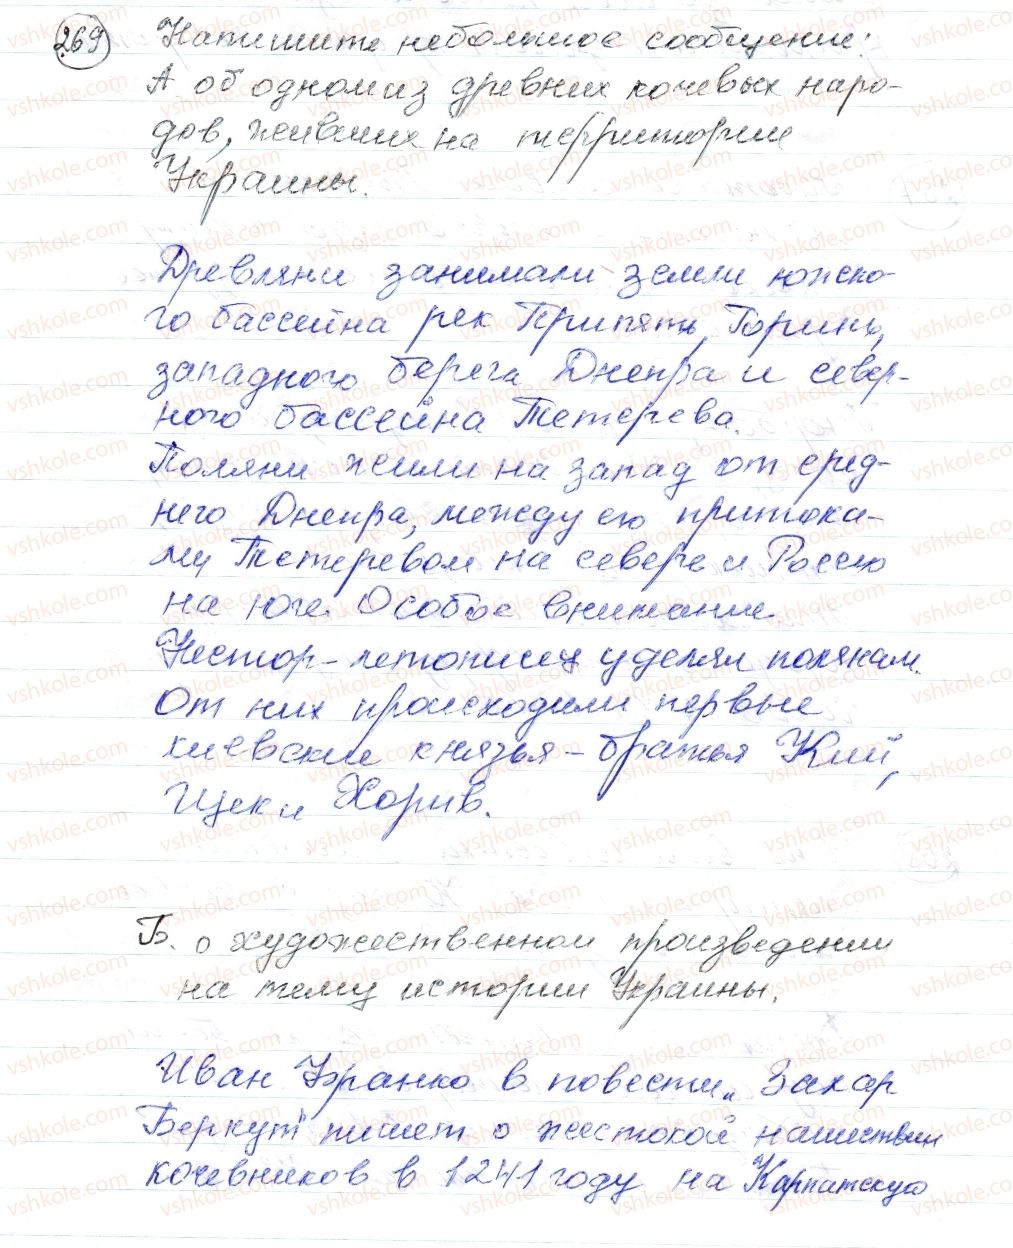 269 Напишите небольшое сообщение:
А об одном из древних кочевых наро-
дов, живших на территории
Украины.
Древляни занимали земли южско-
го бассейна рек Припять, Горинь,
западного берега Днепра и север-
ного бассейна Тетерева.
Поляни жили на запад от сред-
него Днепра, между его притока-
ми Тетеревом на севере и Россю
на юге. Особое внимание
Нестор-летописец уделял полянам.
От них происходили первые
киевские князья - братья Кий,
Щек и Хорив.
Б. о художественном произведении
на тему истории Украины.
Иван Франко в повести „Захар
Беркут" пишет о жестокой нашествии
кочевников в 1241 году на Карпатскую